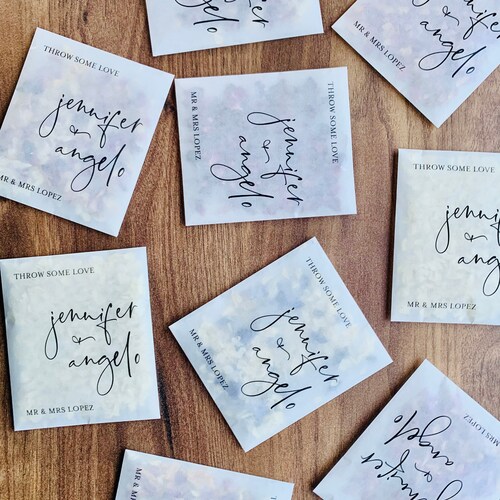 MR & MRS LOPEZ
MR & MRS LOPEZ
angelo
THROW SOME LOVE
jennifer
&
angelo
MR & MRS LOPEZ
THROW SOME LOVE
jennifer
&
angelo
MR & MRS LOPEZ
THROW SOME LOVE
jennifer
&
angelo
MR & MRS LOPEZ
THROW SOME LOVE
jennifer
&
angelo
MR & MRS LOPEZ
THROW SOME LOVE
jennifer
&
angelo
MR & MRS LOPEZ
MRS LOPEZ
angelo
&
jennifer
MR & MRS